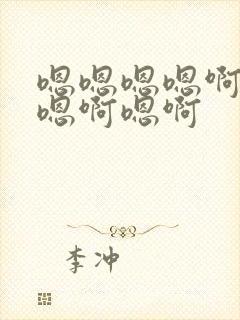 嗯嗯嗯嗯啊
嗯啊嗯啊
李冲